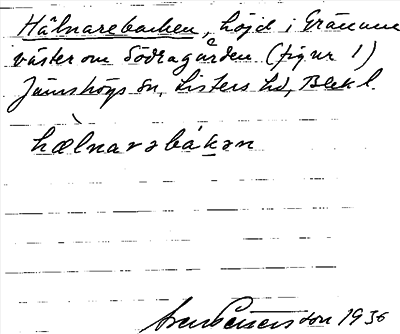 Hälnarebacken, höjd i Gränum
väster om Södragården (fig nr 1)
Jämshögs sn, Listers hd, Blek l.
hælnarəbákən
Sven Petersson 1936